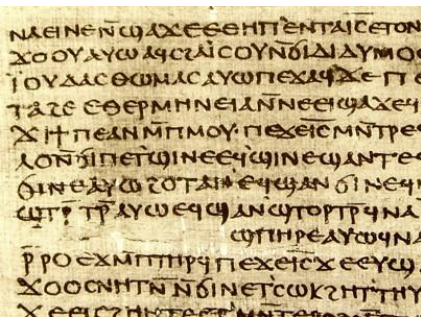 ⲛⲁⲉⲓⲛⲉⲛ̄ϣⲁϫⲉⲉⲑⲏⲡ'ⲉⲛⲧⲁⲓ̅ⲥ̅ⲉⲧⲟⲛ
ϫⲟⲟⲩⲁⲩⲱⲁϥⲥϩⲁⲓⲥⲟⲩⲛ̄ϭⲓⲇⲓⲇⲩⲙⲟⲥ
ⲓ̈ⲟⲩⲇⲁⲥⲑⲱⲙⲁⲥⲁⲩⲱⲡⲉϫⲁϥϫⲉⲡⲉ
ⲧⲁϩⲉⲉⲑⲉⲣⲙⲏⲛⲉⲓⲁⲛ̄ⲛⲉⲉⲓϣⲁϫⲉϥ
ϫⲓϯⲡⲉⲁⲛⲙ̄ⲡⲙⲟⲩ·ⲡⲉϫⲉⲓ̅ⲥ̅ⲙⲛ̄ⲧⲣⲉ
ⲗⲟⲛ̄ϭⲓⲡⲉⲧ'ϣⲓⲛⲉⲉϥϣⲓⲛⲉϣⲁⲛⲧⲉ
ϭⲓⲛⲉⲁⲩⲱϩⲟⲧⲁⲛ'ⲉϥϣⲁⲛϭⲓⲛⲉϥ
ϣⲧⲣ̄ⲧⲣ̄ⲁⲩⲱⲉϥϣⲁⲛϣⲧⲟⲣⲧⲣ̄ϥⲛⲁ
ϣⲡⲏⲣⲉⲁⲩⲱϥⲛⲁ
ⲣ̄ⲣ̄ⲣⲟⲉϫⲙ̄ⲡⲧⲏⲣϥⲡⲉϫⲉⲓ̅ⲥ̅ϫⲉⲉⲩϣ
ϫⲟⲟⲥⲛⲏⲧⲛ̄ⲛ̄ϭⲓⲛⲉⲧ'ⲥⲱⲕϩⲏⲧ'ⲧⲏⲩ